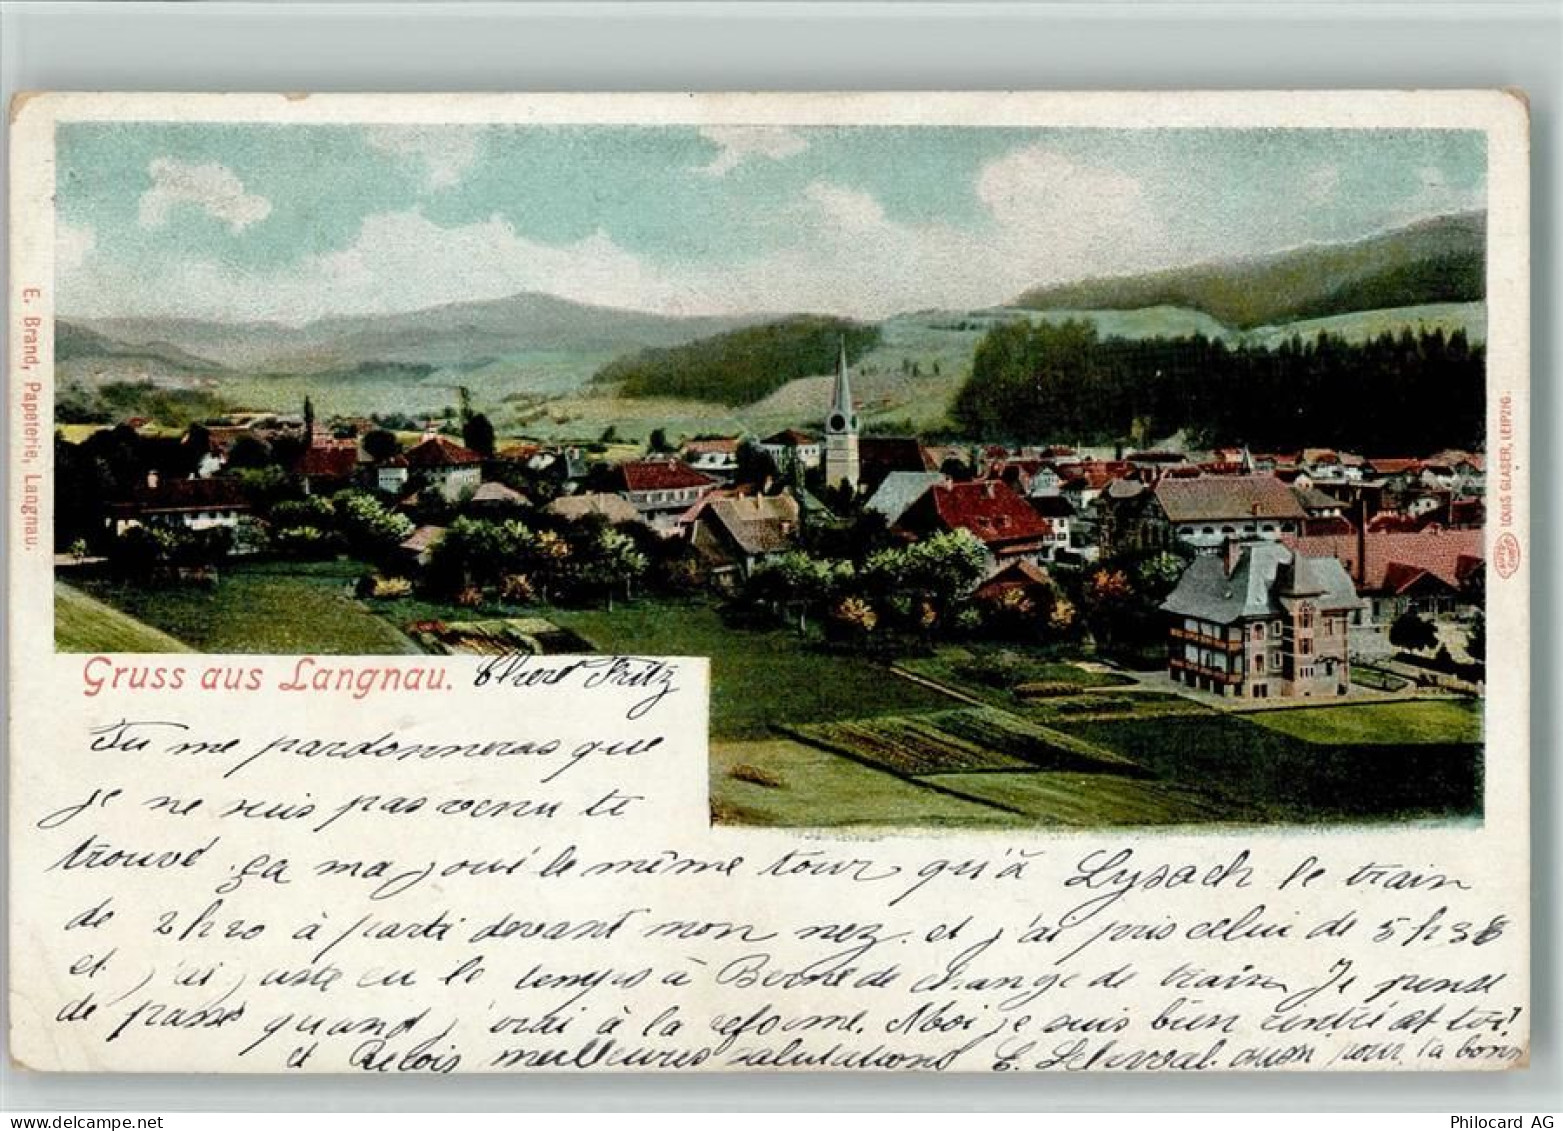 E. Brand, Papeterie, Langnau.
LOUIS GLASER, LEIPZIG.
Gruss aus Langnau. Cher Fritz
Tu me pardonneras que
je ne suis pas venu te
trouvé ça ma joué le même tour qu'à Lysach le train
de 2h20 à parti devant mon nez. et j'ai pris celui de 5h38
et j'ai juste eu le temps à Berne de change de train Je pense
de passé quand j'irai à la reforme. Moi je suis bien rentré et toi?
et Reçois meilleures salutations E. aussi pour ta bonne
delcampe.net
Philocard AG